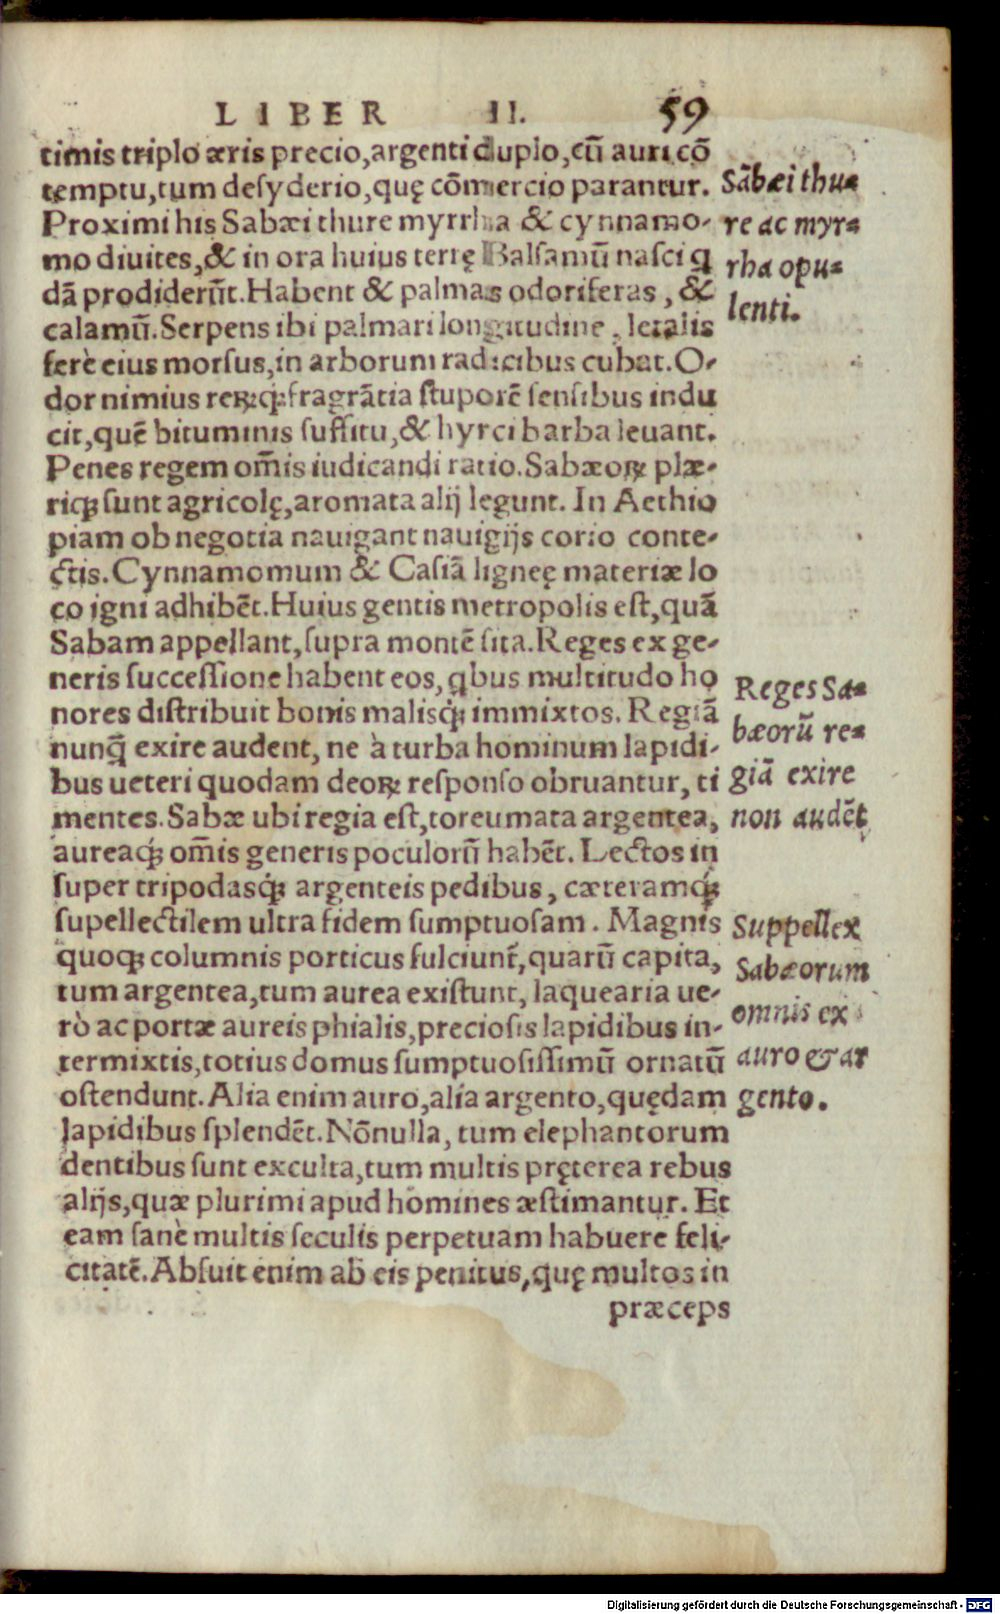 LIBER II. 59
timis triplo æris precio, argenti duplo, cũ auri cõ
temptu, tum desyderio, quę cõmercio parantur.
Proximi his Sabæi thure myrrha & cynnamo-
mo diuites, & in ora huius terrę Balsamũ nasci q
dã prodiderũt. Habent & palmas odoriferas, &
calamũ. Serpens ibi palmari longitudine, letalis
ferè eius morsus, in arborum radicibus cubat. O-
dor nimius reꝝq́ꝫ fragrãtia stuporẽ sensibus indu
cit, quẽ bituminis suffitu, & hyrci barba leuant.
Penes regem om̃is iudicandi ratio. Sabæoꝝ plæ-
riqꝫ sunt agricolę, aromata alij legunt. In Aethio
piam ob negotia nauigant nauigijs corio conte-
ctis. Cynnamomum & Casiã ligneę materiæ lo
co igni adhibẽt. Huius gentis metropolis est, quã
Sabam appellant, supra montẽ sita. Reges ex ge-
neris successione habent eos, qbus multitudo ho
nores distribuit bonis malisq́ꝫ immixtos. Regiã
nunq̃ exire audent, ne à turba hominum lapidi-
bus ueteri quodam deoꝝ responso obruantur, ti
mentes. Sabæ ubi regia est, toreumata argentea,
aureaq́ꝫ om̃is generis poculorũ habẽt. Lectos in
super tripodasq́ꝫ argenteis pedibus, cæteramq́ꝫ
supellectilem ultra fidem sumptuosam. Magnis
quoqꝫ columnis porticus fulciunt̃, quarũ capita,
tum argentea, tum aurea existunt, laquearia ue-
rò ac portæ aureis phialis, preciosis lapidibus in-
termixtis, totius domus sumptuosissimũ ornatũ
ostendunt. Alia enim auro, alia argento, quędam
lapidibus splendẽt. Nõnulla, tum elephantorum
dentibus sunt exculta, tum multis pręterea rebus
alijs, quæ plurimi apud homines æstimantur. Et
eam sanè multis seculis perpetuam habuere feli-
citatẽ. Absuit enim ab eis penitus, quę multos in
præceps
Sabæi thu-
re ac myr-
rha opu-
lenti.
Reges Sa-
bæorũ re-
giã exire
non audẽt
Suppellex
Sabæorum
omnis ex
auro & ar
gento.
Digitalisierung gefördert durch die Deutsche Forschungsgemeinschaft - DFG